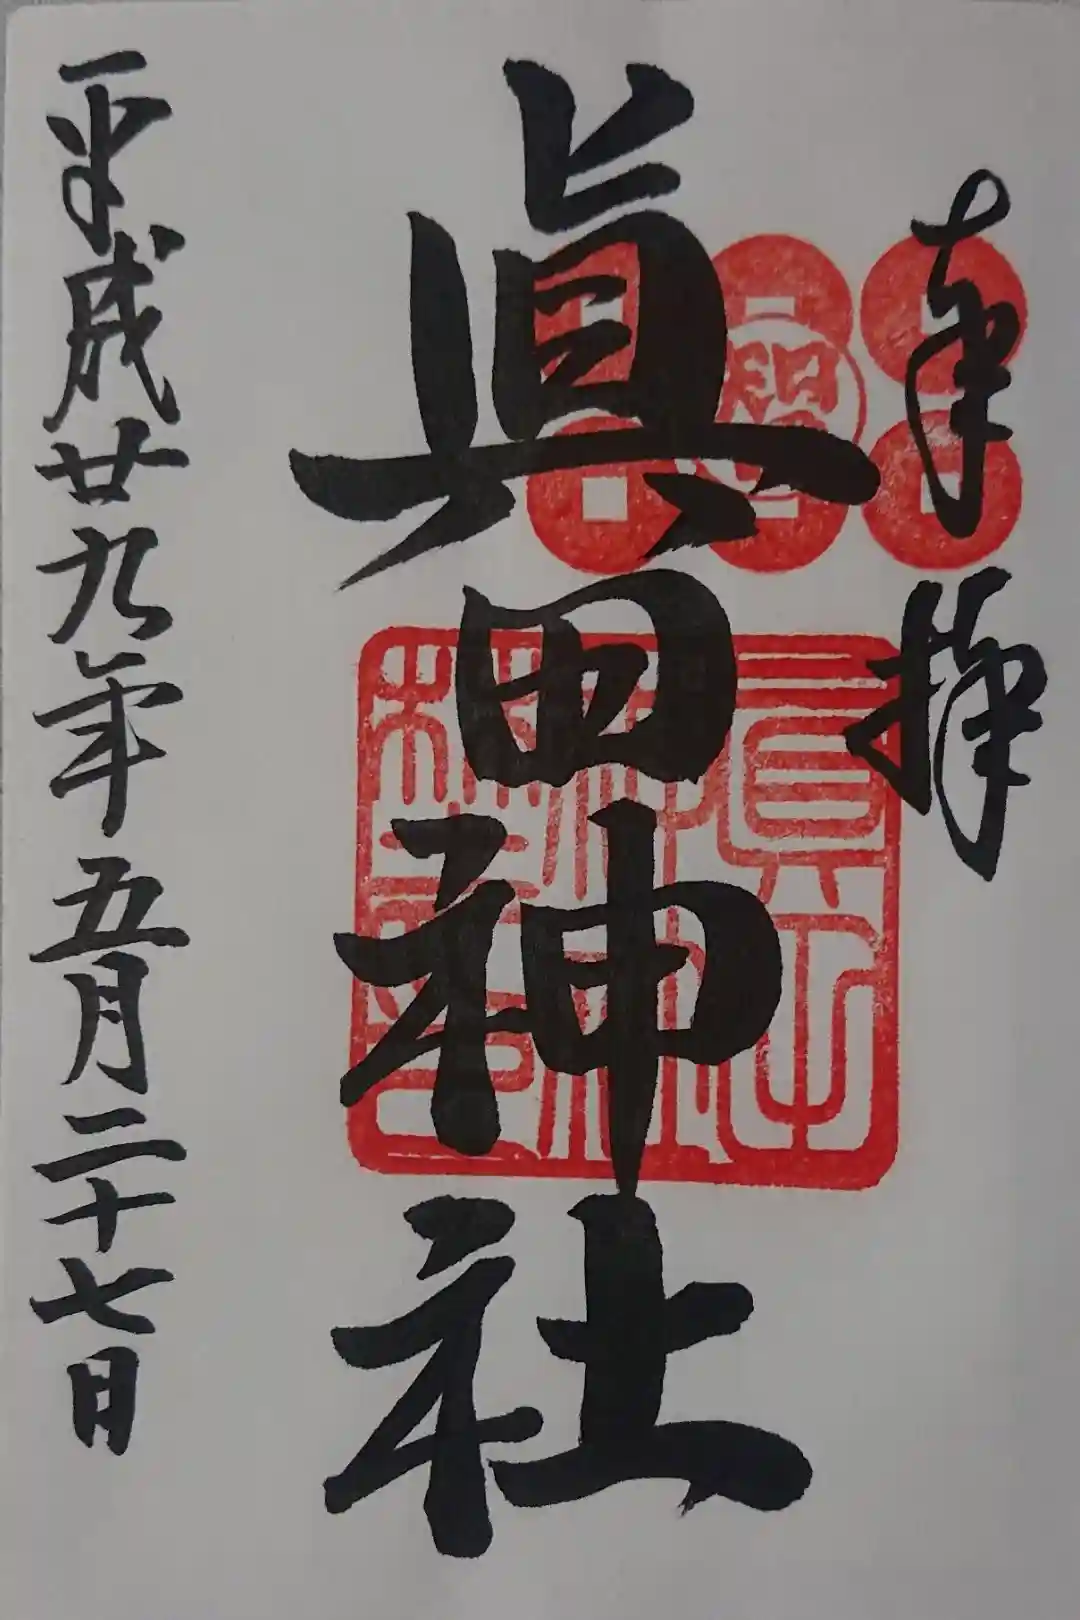 奉拝
眞田神社
眞田神社璽印
平成廿九年五月二十七日